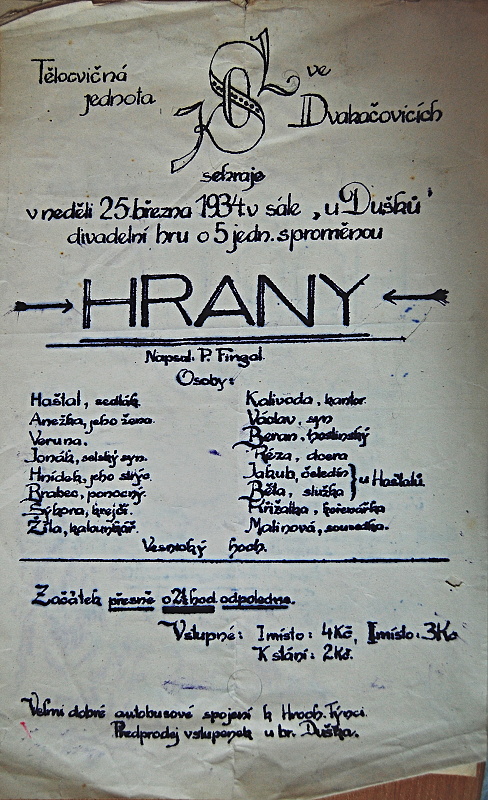 Tělocvičná jednota JSOL ve Dvakačovicích
sehraje
v neděli 25. března 1934 v sále „u Dušků"
divadelní hru o 5 jedn. s proměnou
HRANY
Napsal P. Fingal.
Osoby:
Haštal, sedlák.
Anežka, jeho žena.
Veruna.
Jonáš, selský syn.
Hnídek, jeho strýc.
Brabec, ponocný.
Sýkora, krejčí.
Žíla, kalounkář.
Kalivoda, kantor.
Václav, syn
Beran, hostinský
Réza, dcera
Jakub, čeledín
Běta, služka
} u Haštalů
Křižalka, kořenářka
Malinová, sousedka.
Vesnický hoch.
Začátek přesně o 2½ hod. odpoledne.
Vstupné: I místo: 4Kč, II místo: 3Kč
K stání: 2Kč.
Velmi dobré autobusové spojení k Hroch. Týnci.
Předprodej vstupenek u br. Duška.